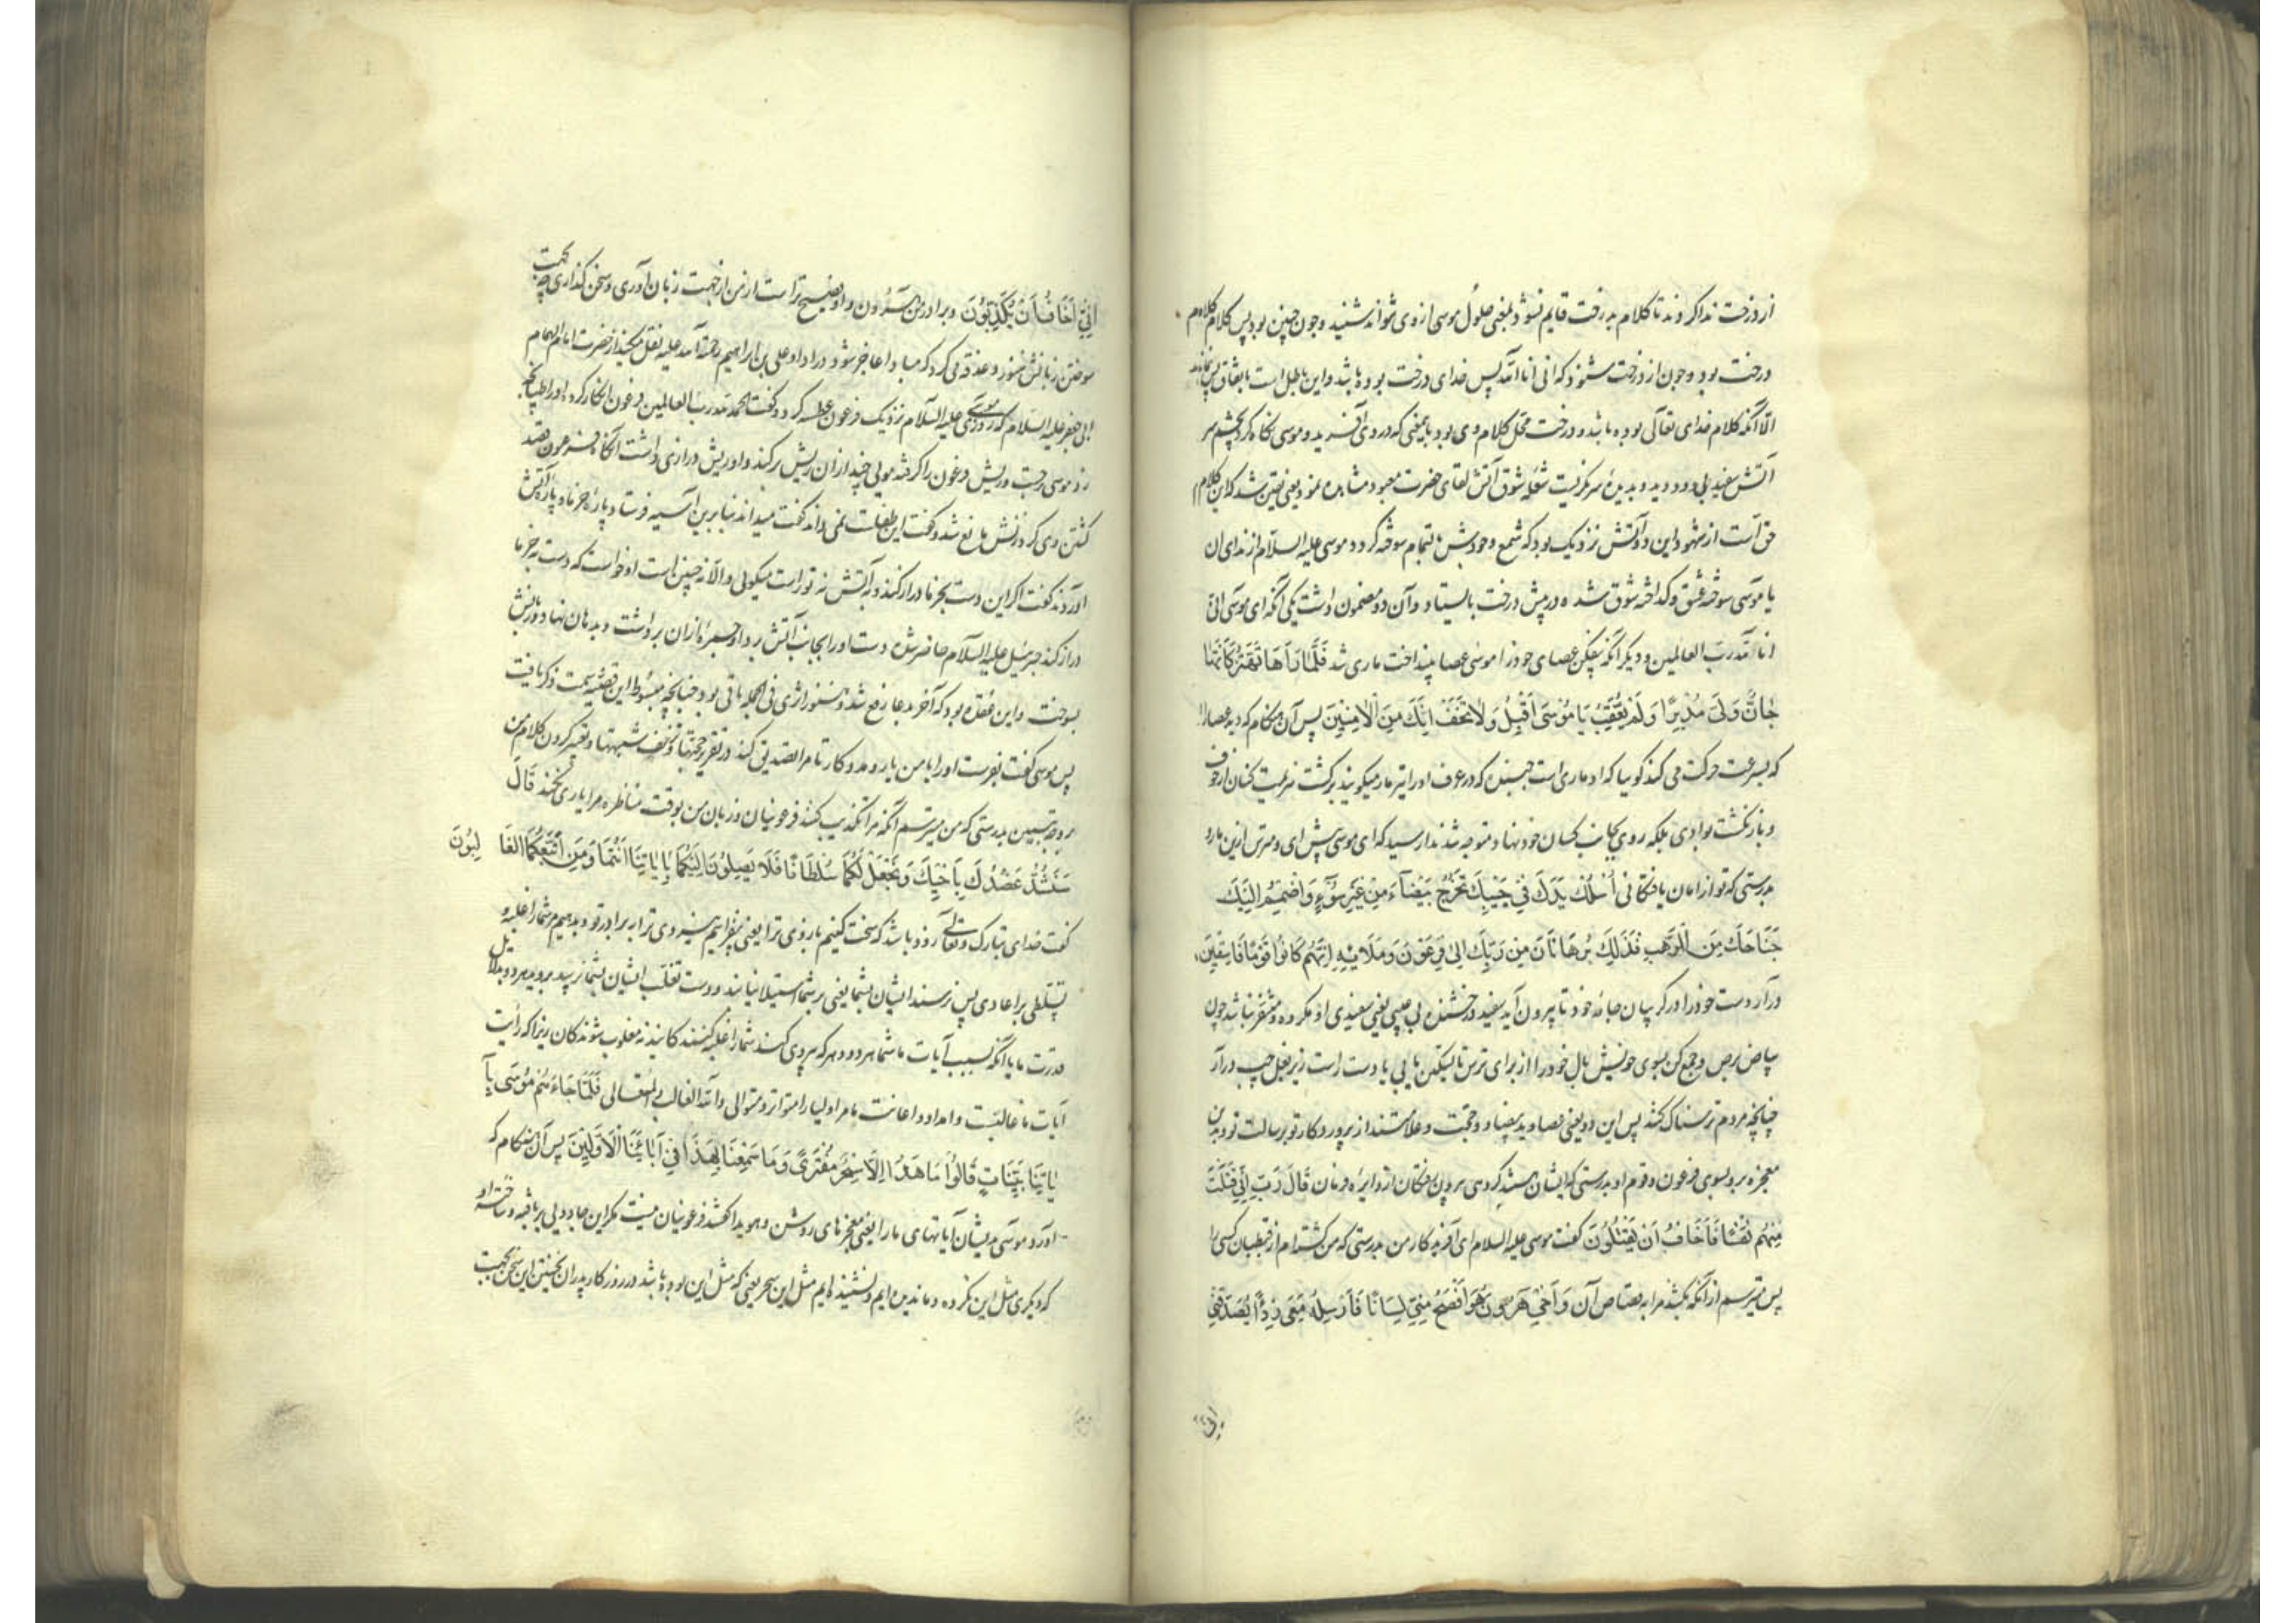 از درخت ندا کردند تا کلام بدرخت قایم نشود بمعنی حلول موسی از وی نتواند شنید و چون چنین بود پس کلام کلام
درخت بود و چون از درخت شنود که انی انا الله پس خدای درخت بوده باشد و این باطل است باتفاق پس نماند
الا آنکه کلام خدای تعالی بوده باشد و درخت محل کلام وی بود بمعنی که در وی آفرید و موسی نگاه کرد بچشم سر
آتش سفید بی دود دید و بدیدهٔ سر نگریست شعلهٔ شوق آتش لقای حضرت معبود مشاهده نمود یعنی یقین شد که این کلام
حق است از شهود این دو آتش نزدیک بود که شمع وجودش بتمام سوخته گردد موسی علیه السلام از ندای ان
یا موسی سوختهٔ عشق و کداختهٔ شوق شده در پیش درخت بایستاد و آن دو مضمون داشت یکی آنکه ای موسی انی
انا الله رب العالمین و دیگر آنکه بیفکن عصای خود را موسی عصا بینداخت ماری شد فَلَمَّا رَآهَا تَهْتَزُّ كَأَنَّهَا
جَانٌّ وَلَّى مُدْبِرًا وَلَمْ يُعَقِّبْ يَا مُوسَى أَقْبِلْ وَلَا تَخَفْ إِنَّكَ مِنَ الْآمِنِينَ پس آن هنگام که دید عصا را
که بسرعت حرکت می کند کوییا که او ماری است جهنده که در عرف او را تیر مار میکویند برکشت هزیمت کنان از خوف
و باز نکشت بوادی بلکه روی بجانب کسان خود نهاد و متوجه شد ندا رسید که ای موسی پیش ای و مترس ازین مار
بدرستی که تو از امان یافتکانی اُسْلُكْ يَدَكَ فِي جَيْبِكَ تَخْرُجْ بَيْضَاءَ مِنْ غَيْرِ سُوءٍ وَاضْمُمْ إِلَيْكَ
جَنَاحَكَ مِنَ الرَّهْبِ فَذَانِكَ بُرْهَانَانِ مِنْ رَبِّكَ إِلَى فِرْعَوْنَ وَمَلَئِهِ إِنَّهُمْ كَانُوا قَوْمًا فَاسِقِينَ
درآر دست خود را در کریبان جامهٔ خود تا بیرون آید سفید و درخشنده بی عیبی یعنی سفیدی او مکروه و متنفر نباشد چون
بیاض برص و جمع کن بسوی خویش بال خود را از برای ترس تا تسکین یابی یا دست راست زیر بغل چپ درآر
چنانچه مردم ترسناک کنند پس این دو یعنی عصا و ید بیضا دو حجت و علامتند از پروردکار تو برسالت تو و بدین
معجزه برو بسوی فرعون و قوم او بدرستی که ایشان هستند کروهی بیرون رفتکان از دایرهٔ فرمان قَالَ رَبِّ إِنِّي قَتَلْتُ
مِنْهُمْ نَفْسًا فَأَخَافُ أَنْ يَقْتُلُونِ کفت موسی علیه السلام ای آفریدکار من بدرستی که من کشته ام از قبطیان کسی را
پس میترسم از آنکه بکشند مرا به قصاص آن وَأَخِي هَارُونُ هُوَ أَفْصَحُ مِنِّي لِسَانًا فَأَرْسِلْهُ مَعِيَ رِدْءًا يُصَدِّقُنِي
إِنِّي
إِنِّي أَخَافُ أَنْ يُكَذِّبُونِ و برادر من هرون و او فصیح تر است از من از جهت زبان آوری و سخن کذاری چه بجهت
سوختن زبانش هنوز و عقده می کرد که مبادا عاجز شود در ادا و علی بن ابراهیم رحمة الله علیه نقل میکند از حضرت امام الهمام
ابی جعفر علیه السلام که روزی موسی علیه السلام نزدیک فرعون عطسه کرد و کفت الحمد لله رب العالمین فرعون انکار کرد و او را طپانچه
زد موسی برجست و ریش فرعون را کرفته مویی چند از ان ریش برکند و او ریش درازی داشت آنکاه فرعون قصد
کشتن وی کرد زنش مانع شد و کفت این طفلست نمی داند کفت میداند بنابرین آسیه فرستاد پارهٔ خرما و پارهٔ آتش
آوردند کفت اکر این دست بخرما دراز کند و به آتش نه تو راست میکویی و الا نه چنین است او خواست که دست به خرما
دراز کند جبرئیل علیه السلام حاضر شده دست او را بجانب آتش برد او جمرهٔ از ان برداشت و بدهان نهاد و زبانش
بسوخت و این عقده بود که آخر بدعا رفع شد و هنوز اثری فی الجمله باقی بود چنانچه مبسوط این قصه سمت ذکر یافت
پس موسی کفت بفرست او را با من یار و مدد کار تا مرا تصدیق کند در تقریر حجتها و تزییف شبهتها و تعبیر کردن کلام من
بر وجه تبیین بدرستی که من میترسم آنکه مرا تکذیب کنند فرعونیان و زبان من بوقت مناظره مرا یاری نکند قَالَ
سَنَشُدُّ عَضُدَكَ بِأَخِيكَ وَنَجْعَلُ لَكُمَا سُلْطَانًا فَلَا يَصِلُونَ إِلَيْكُمَا بِآيَاتِنَا أَنْتُمَا وَمَنِ اتَّبَعَكُمَا الْغَالِبُونَ
کفت خدای تبارک و تعالی زود باشد که سخت کنیم بازوی ترا یعنی بیفزاییم نیروی ترا به برادر تو و بدهیم مر شما را غلبه و
تسلطی بر اعادی پس نرسند ایشان بشما یعنی بر شما استیلا نیابند و دست تغلب ایشان بشما نرسد بروید هر دو بدلایل
قدرت ما یا آنکه بسبب آیات ما شما هر دو و هر که پیروی کند شما را غلبه کنندکانید نه مغلوب شوندکان زیرا که رایت
آیات ما غالبست و امداد و اعانت ما مر اولیا را متواتر و متوالی والله الغالب المتعالی فَلَمَّا جَاءَهُمْ مُوسَى بِآ
يَاتِنَا بَيِّنَاتٍ قَالُوا مَا هَذَا إِلَّا سِحْرٌ مُفْتَرًى وَمَا سَمِعْنَا بِهَذَا فِي آبَائِنَا الْأَوَّلِينَ پس آن هنکام که
آورد موسی بدیشان آیاتهای ما را یعنی معجزهای روشن و هویدا کفتند فرعونیان نیست مکر این جادویی بر بافته و ساخته او
که دیکری مثل این نکرده و ماندیده ایم و نشنیده ایم مثل این سحر یعنی که مثل این بوده باشد در روزکار پدران نخستین این سخن بجهت